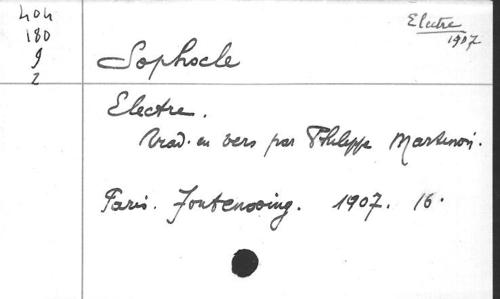 404
180
9
2
Electre
1907
Sophocle
Electre.
Trad. en vers par Philippe Martinon.
Paris. Fontemoing. 1907. 16.